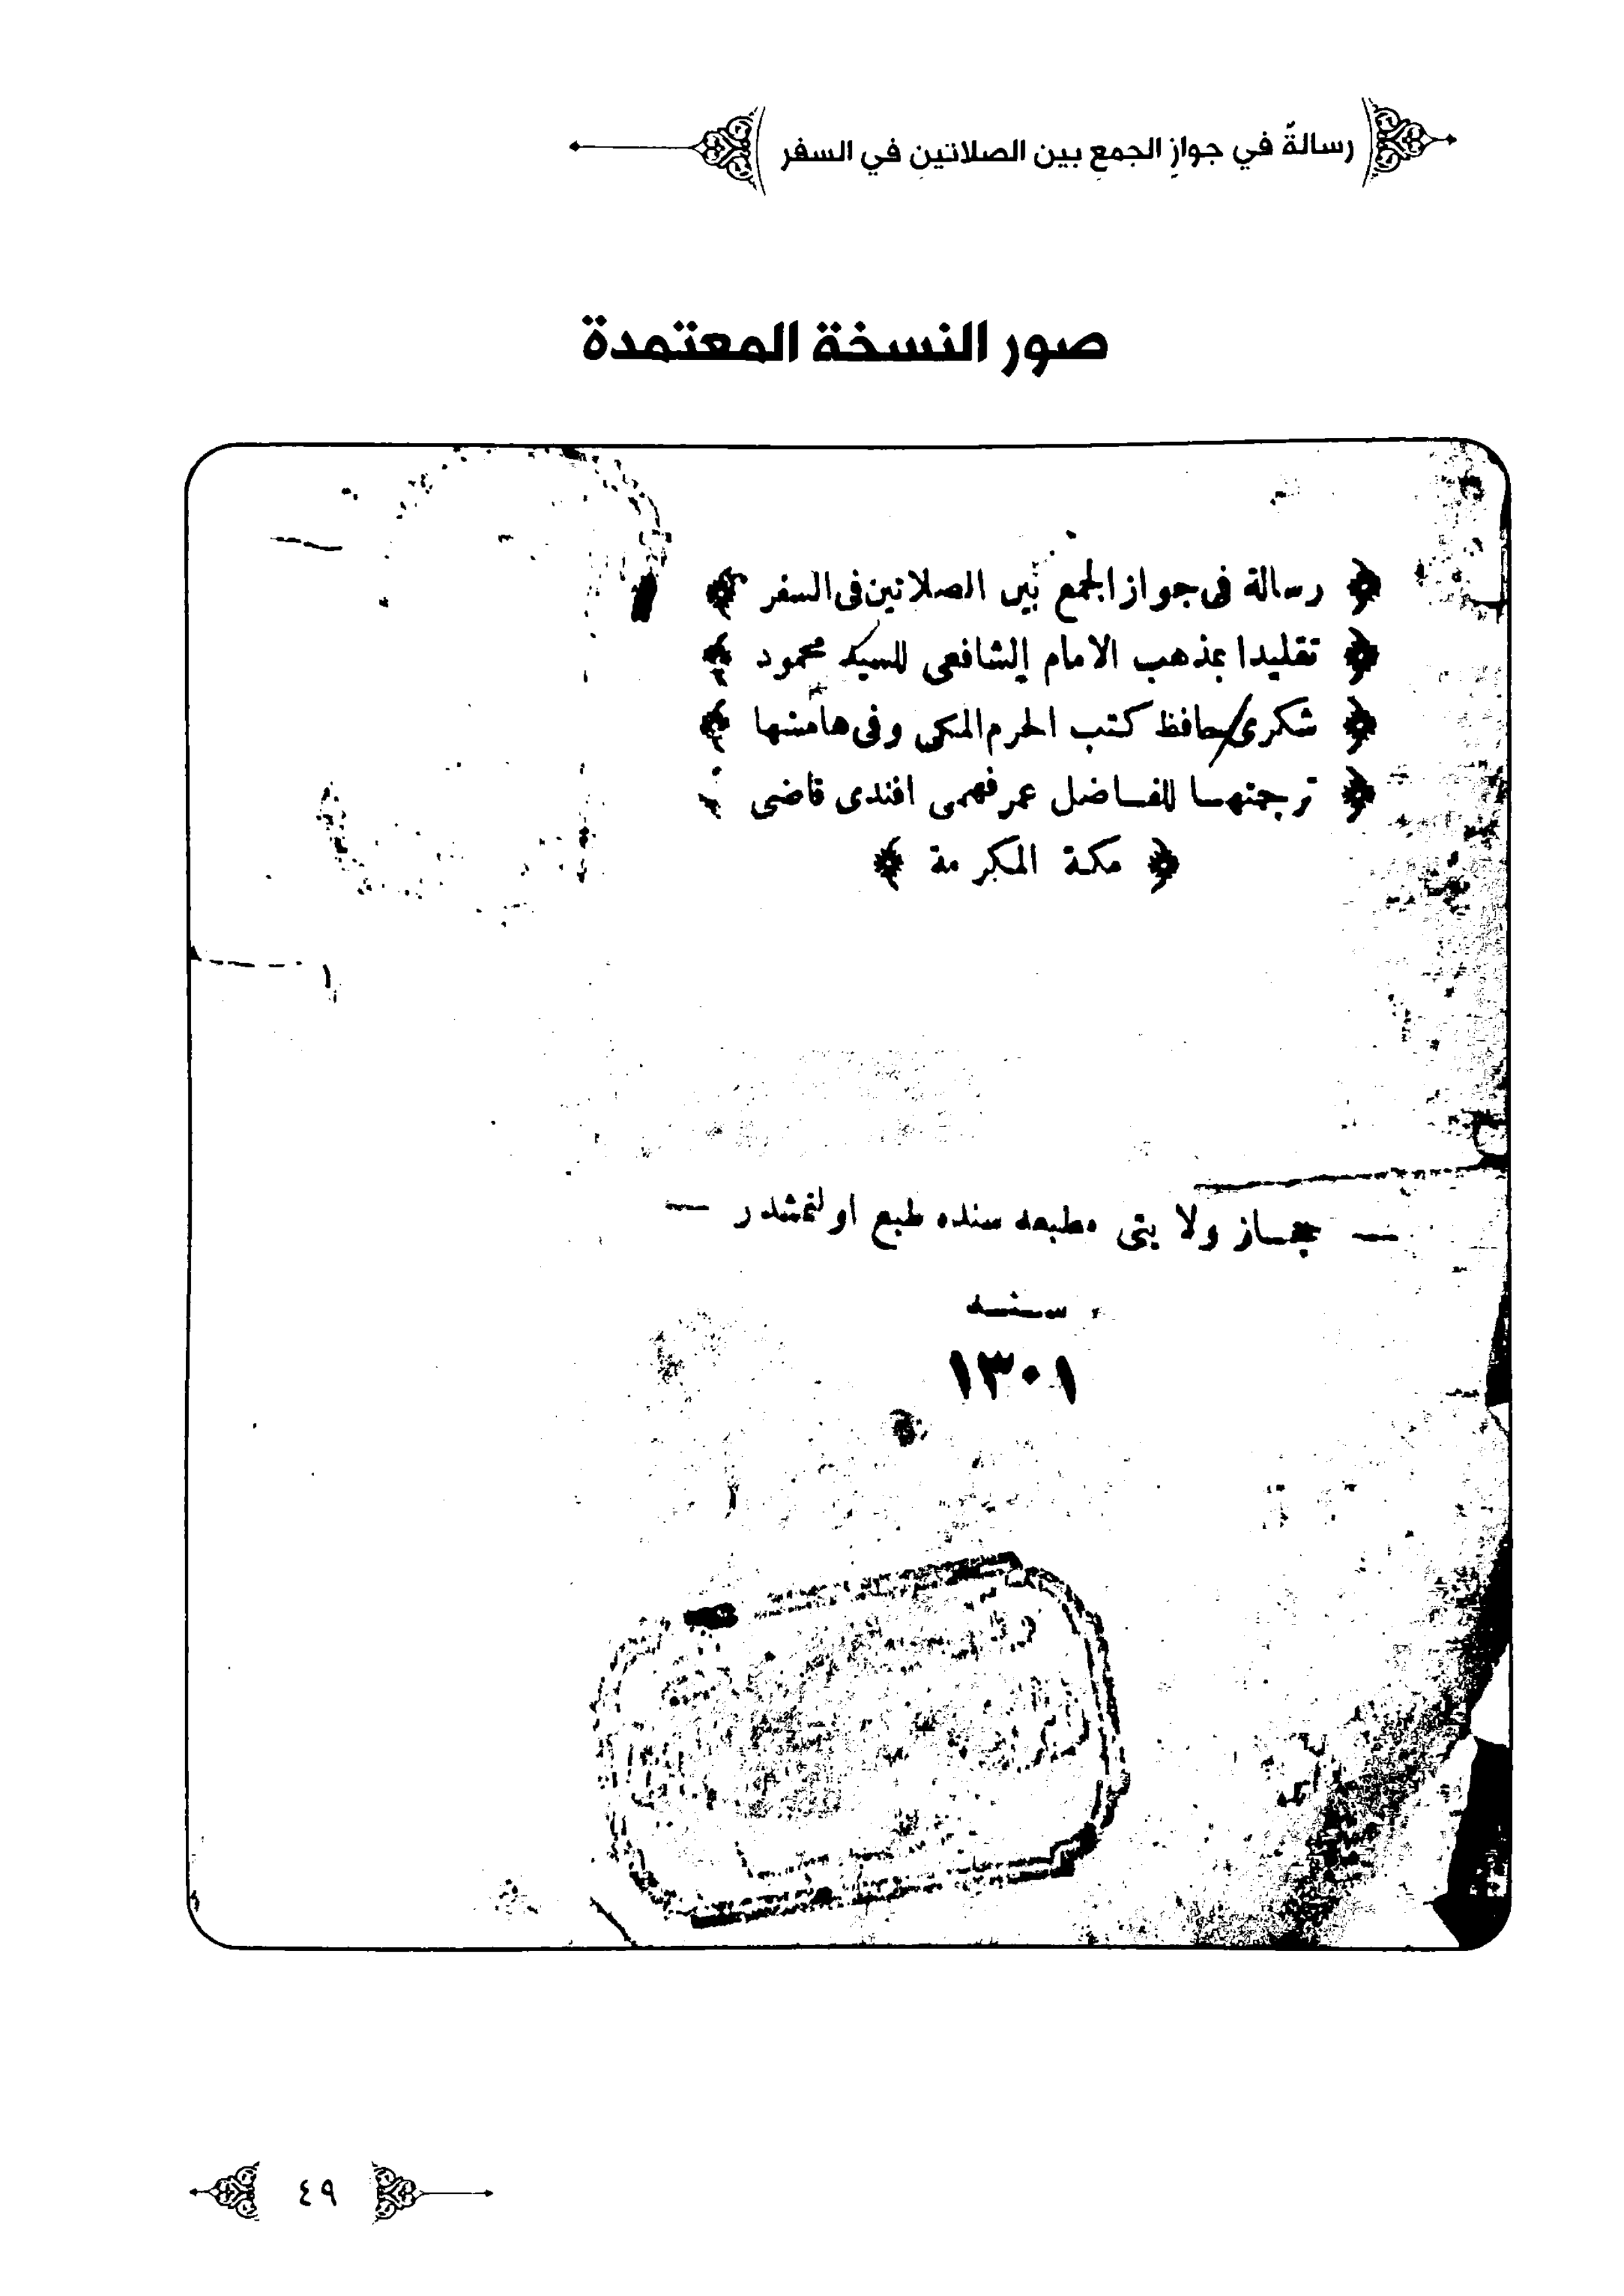 رسالةٌ في جوازِ الجمعِ بين الصلاتينِ في السفر
صور النسخة المعتمدة
﴿ رسالة فى جواز الجمع بين الصلاتين فى السفر ﴾
﴿ تقليدا بمذهب الامام الشافعى للسيد محمود ﴾
﴿ شكرى حافظ كتب الحرم المكى وفى هامشها ﴾
﴿ ترجمتهـا للفـاضل عمر فهمى افندى قاضى ﴾
﴿ مكـة المكرمة ﴾
— حجـاز ولايتى مطبعه سنده طبع اولنمشدر —
سـنـه
١٣٠١
٤٩